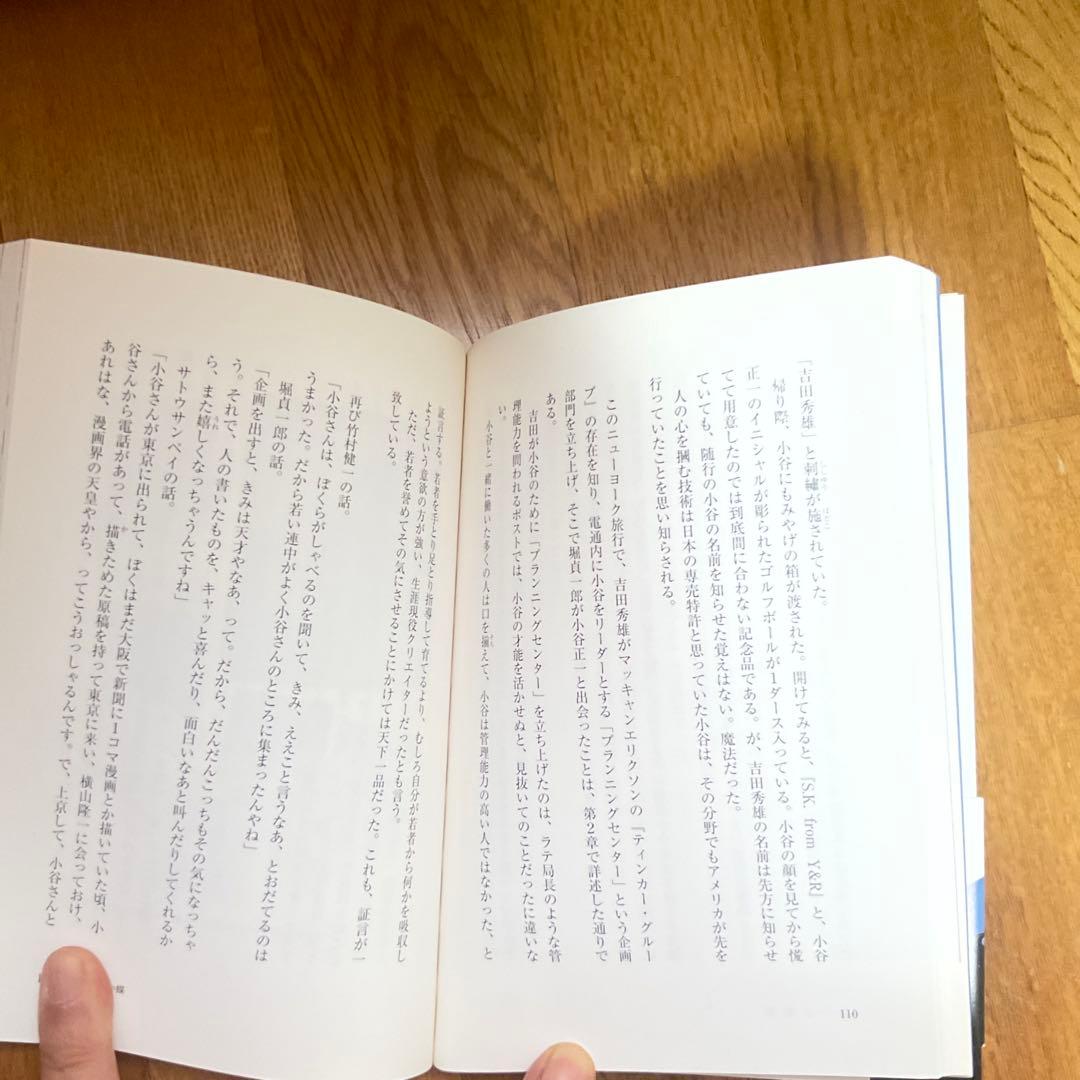 「吉田秀雄」と刺繡が施されていた。
帰り際、小谷にもみやげの箱が渡された。開けてみると、『S.K. from Y&R』と、小谷
正一のイニシャルが彫られたゴルフボールが1ダース入っている。小谷の顔を見てから慌
てて用意したのでは到底間に合わない記念品である。が、吉田秀雄の名前は先方に知らせ
ていても、随行の小谷の名前を知らせた覚えはない。魔法だった。
人の心を摑む技術は日本の専売特許と思っていた小谷は、その分野でもアメリカが先を
行っていたことを思い知らされる。
このニューヨーク旅行で、吉田秀雄がマッキャンエリクソンの『ティンカー・グルー
プ』の存在を知り、電通内に小谷をリーダーとする「プランニングセンター」という企画
部門を立ち上げ、そこで堀貞一郎が小谷正一と出会ったことは、第2章で詳述した通りで
ある。
吉田が小谷のために「プランニングセンター」を立ち上げたのは、ラテ局長のような管
理能力を問われるポストでは、小谷の才能を活かせぬと、見抜いてのことだったに違いな
い。
小谷と一緒に働いた多くの人は口を揃えて、小谷は管理能力の高い人ではなかった、と
110
証言する。若者を手とり足とり指導して育てるより、むしろ自分が若者から何かを吸収し
ようという意欲の方が強い、生涯現役クリエイターだったとも言う。
ただ、若者を誉めてその気にさせることにかけては天下一品だった。これも、証言が一
致している。
再び竹村健一の話。
「小谷さんは、ぼくらがしゃべるのを聞いて、きみ、ええこと言うなあ、とおだてるのは
うまかった。だから若い連中がよく小谷さんのところに集まったんやね」
堀貞一郎の話。
「企画を出すと、きみは天才やなあ、って。だから、だんだんこっちもその気になっちゃ
う。それで、人の書いたものを、キャッと喜んだり、面白いなあと叫んだりしてくれるか
ら、また嬉しくなっちゃうんですね」
サトウサンペイの話。
「小谷さんが東京に出られて、ぼくはまだ大阪で新聞に1コマ漫画とか描いていた頃、小
谷さんから電話があって、描きためた原稿を持って東京に来い、横山隆一に会っておけ、
あれはな、漫画界の天皇やから、ってこうおっしゃるんです。で、上京して、小谷さんと